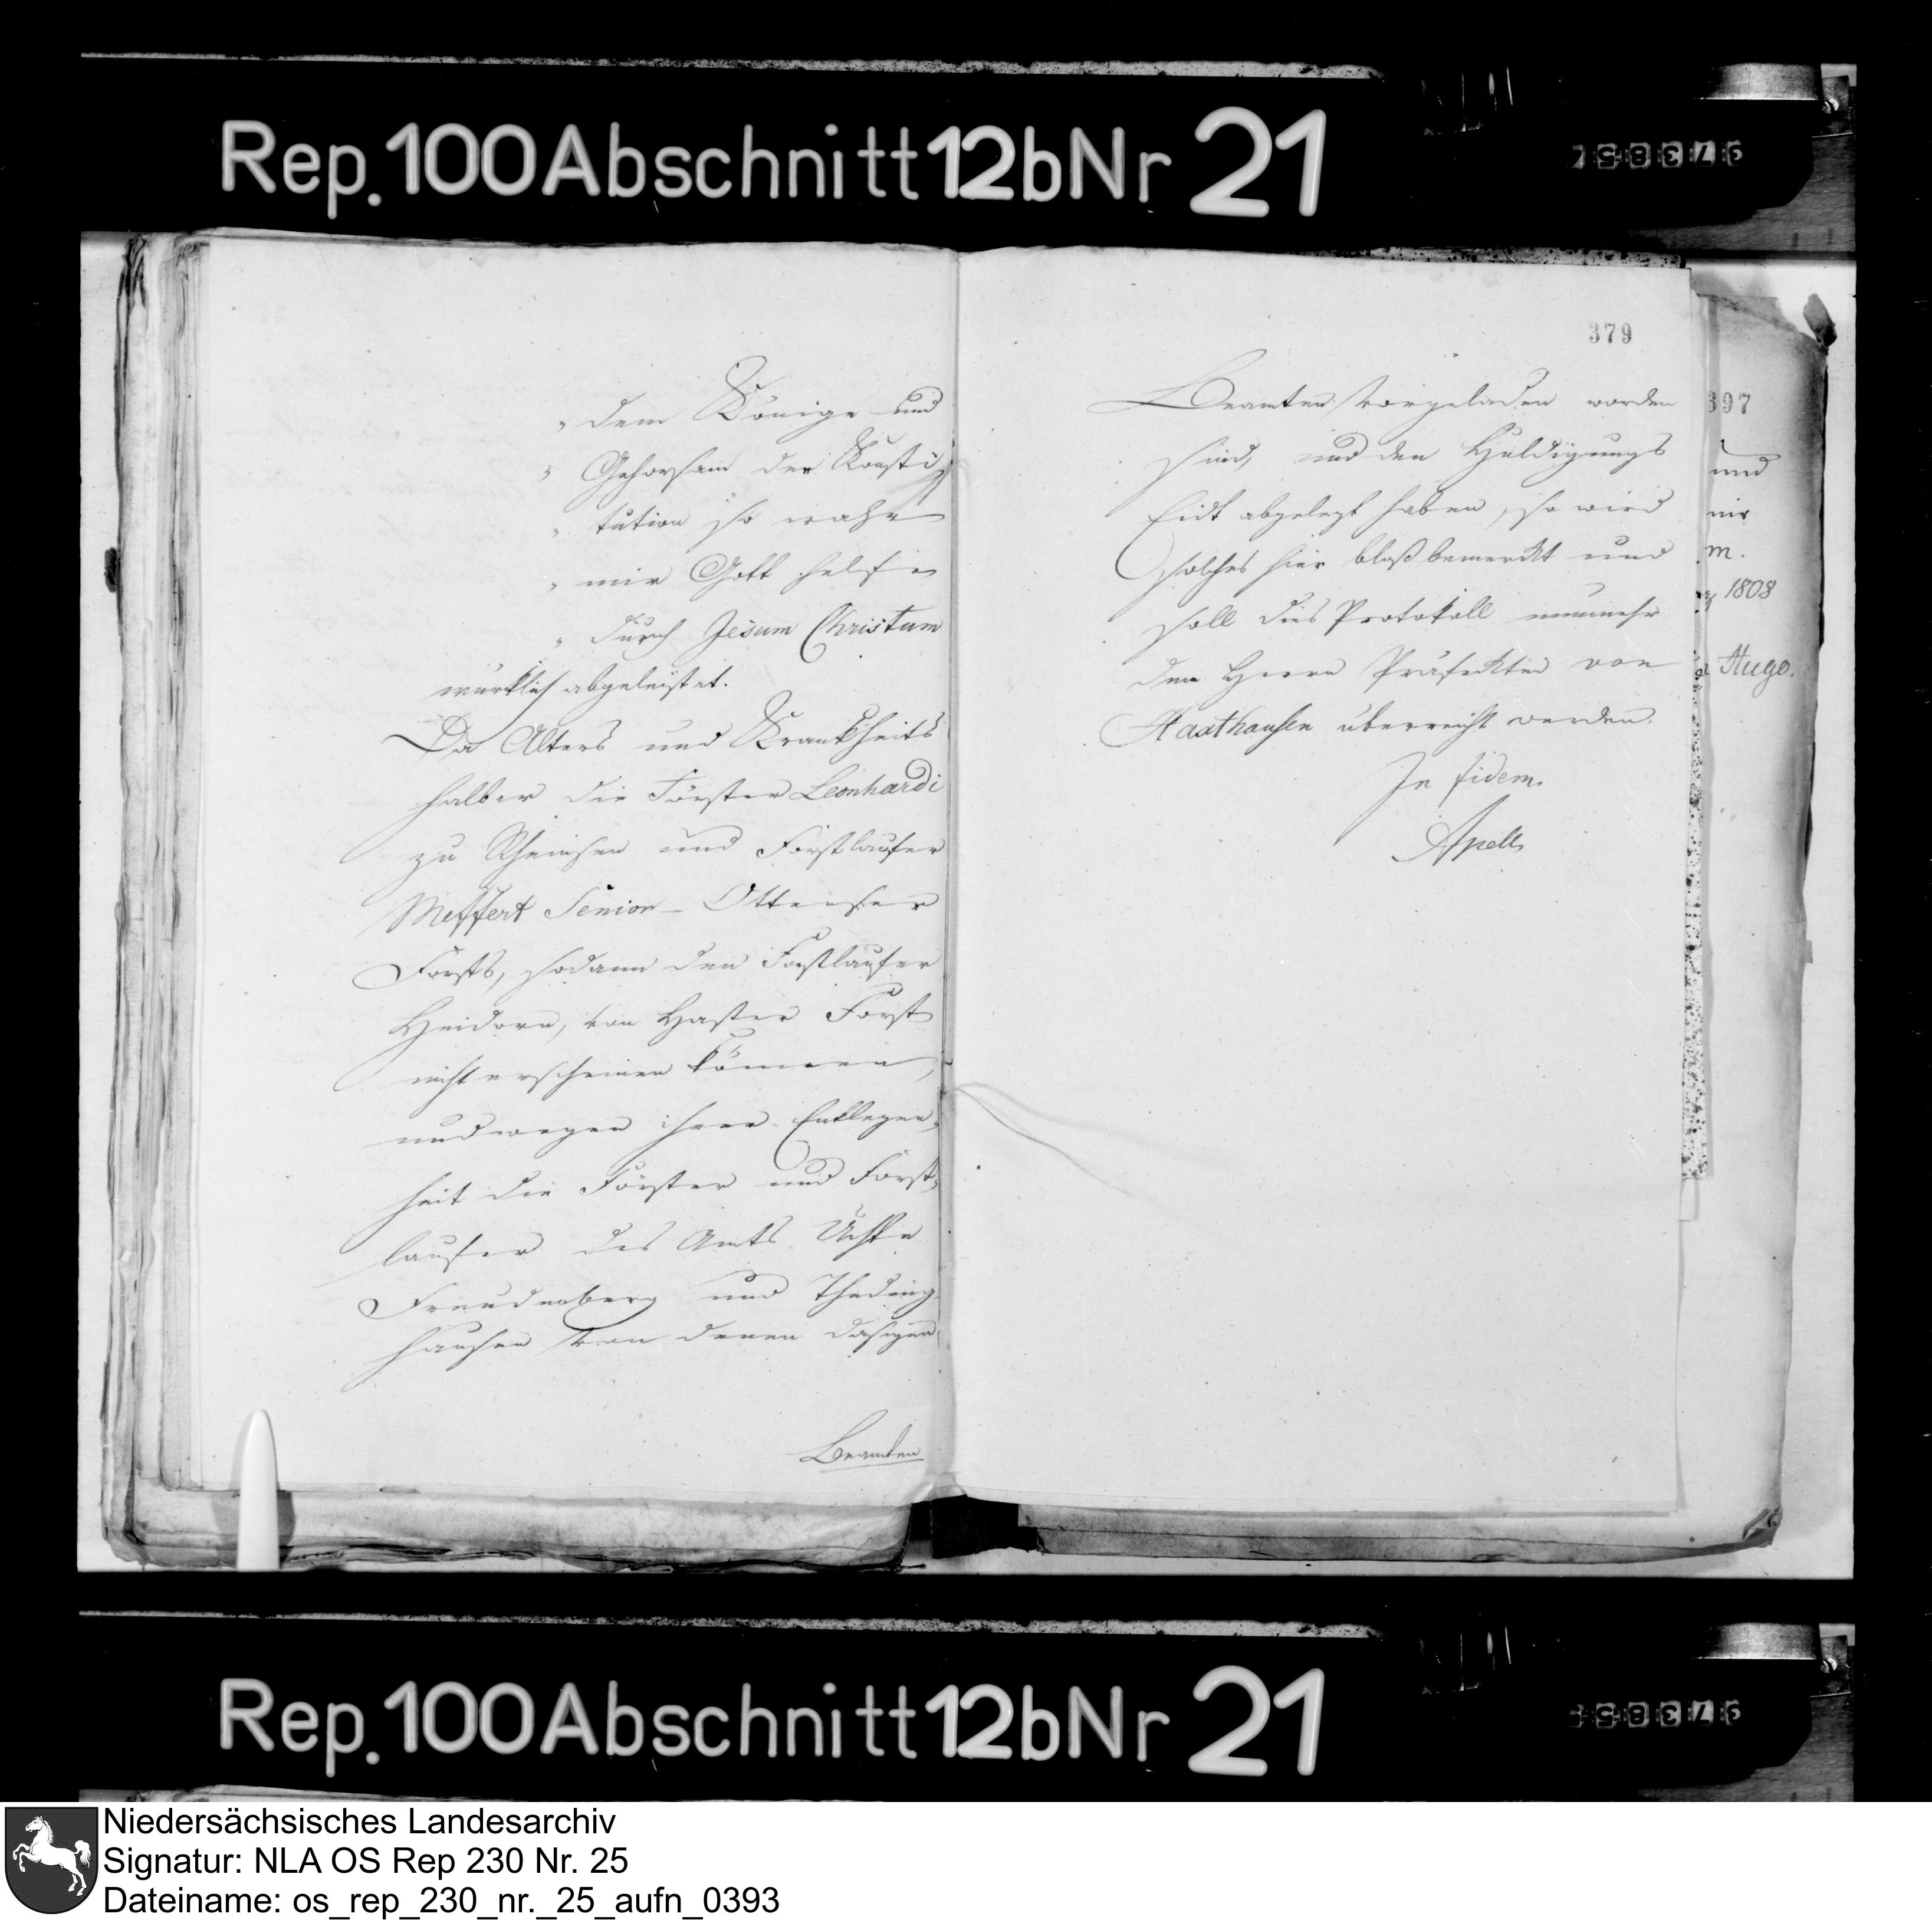 Rep. 100 Abschnitt 12b Nr 21
„ dem Könige und
„ Gehorsam der Konsti,
„ tution so wahr
„ mir Gott helfe
„ durch Jesum Christum
würklich abgeleistet.
Da Alters und Krankheits
halber die Förster Leonhardi
zu und Forstlaufer
Meffert Senior - Ottenser
Forsts, sodann den Forstlaufer
Heidorn, von Haster Forst
nicht erscheinen können,
und wegen ihrer Entlegen,
heit die Förster und Forst,
laufer des Amts Uchte
Freudenberg und Theding,
hausen von denen dasigen
Beamten
379
Beamten vorgeladen worden
sind, und den Huldigungs
Eidt abgelegt haben, so wird
solches hier bloß bemerckt und
soll dies Protokoll nunmehr
dem Herrn Präfeckten von
Haxthausen überreicht werden.
In fidem.
Apell
397
und
mir
m.
1808
Hugo.
Rep. 100 Abschnitt 12b Nr 21
Niedersächsisches Landesarchiv
Signatur: NLA OS Rep 230 Nr. 25
Dateiname: os_rep_230_nr._25_aufn_0393